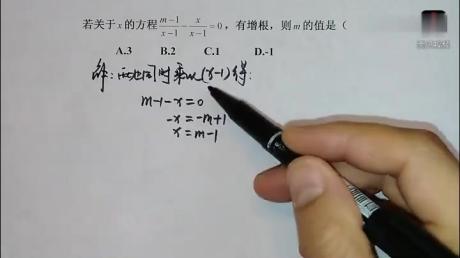 若关于x的方程\frac{m-1}{x-1}-\frac{x}{x-1}=0，有增根，则m的值是（
A.3 B.2 C.1 D.-1
解：两边同时乘以(x-1)得：
m-1-x=0
-x=-m+1
x=m-1